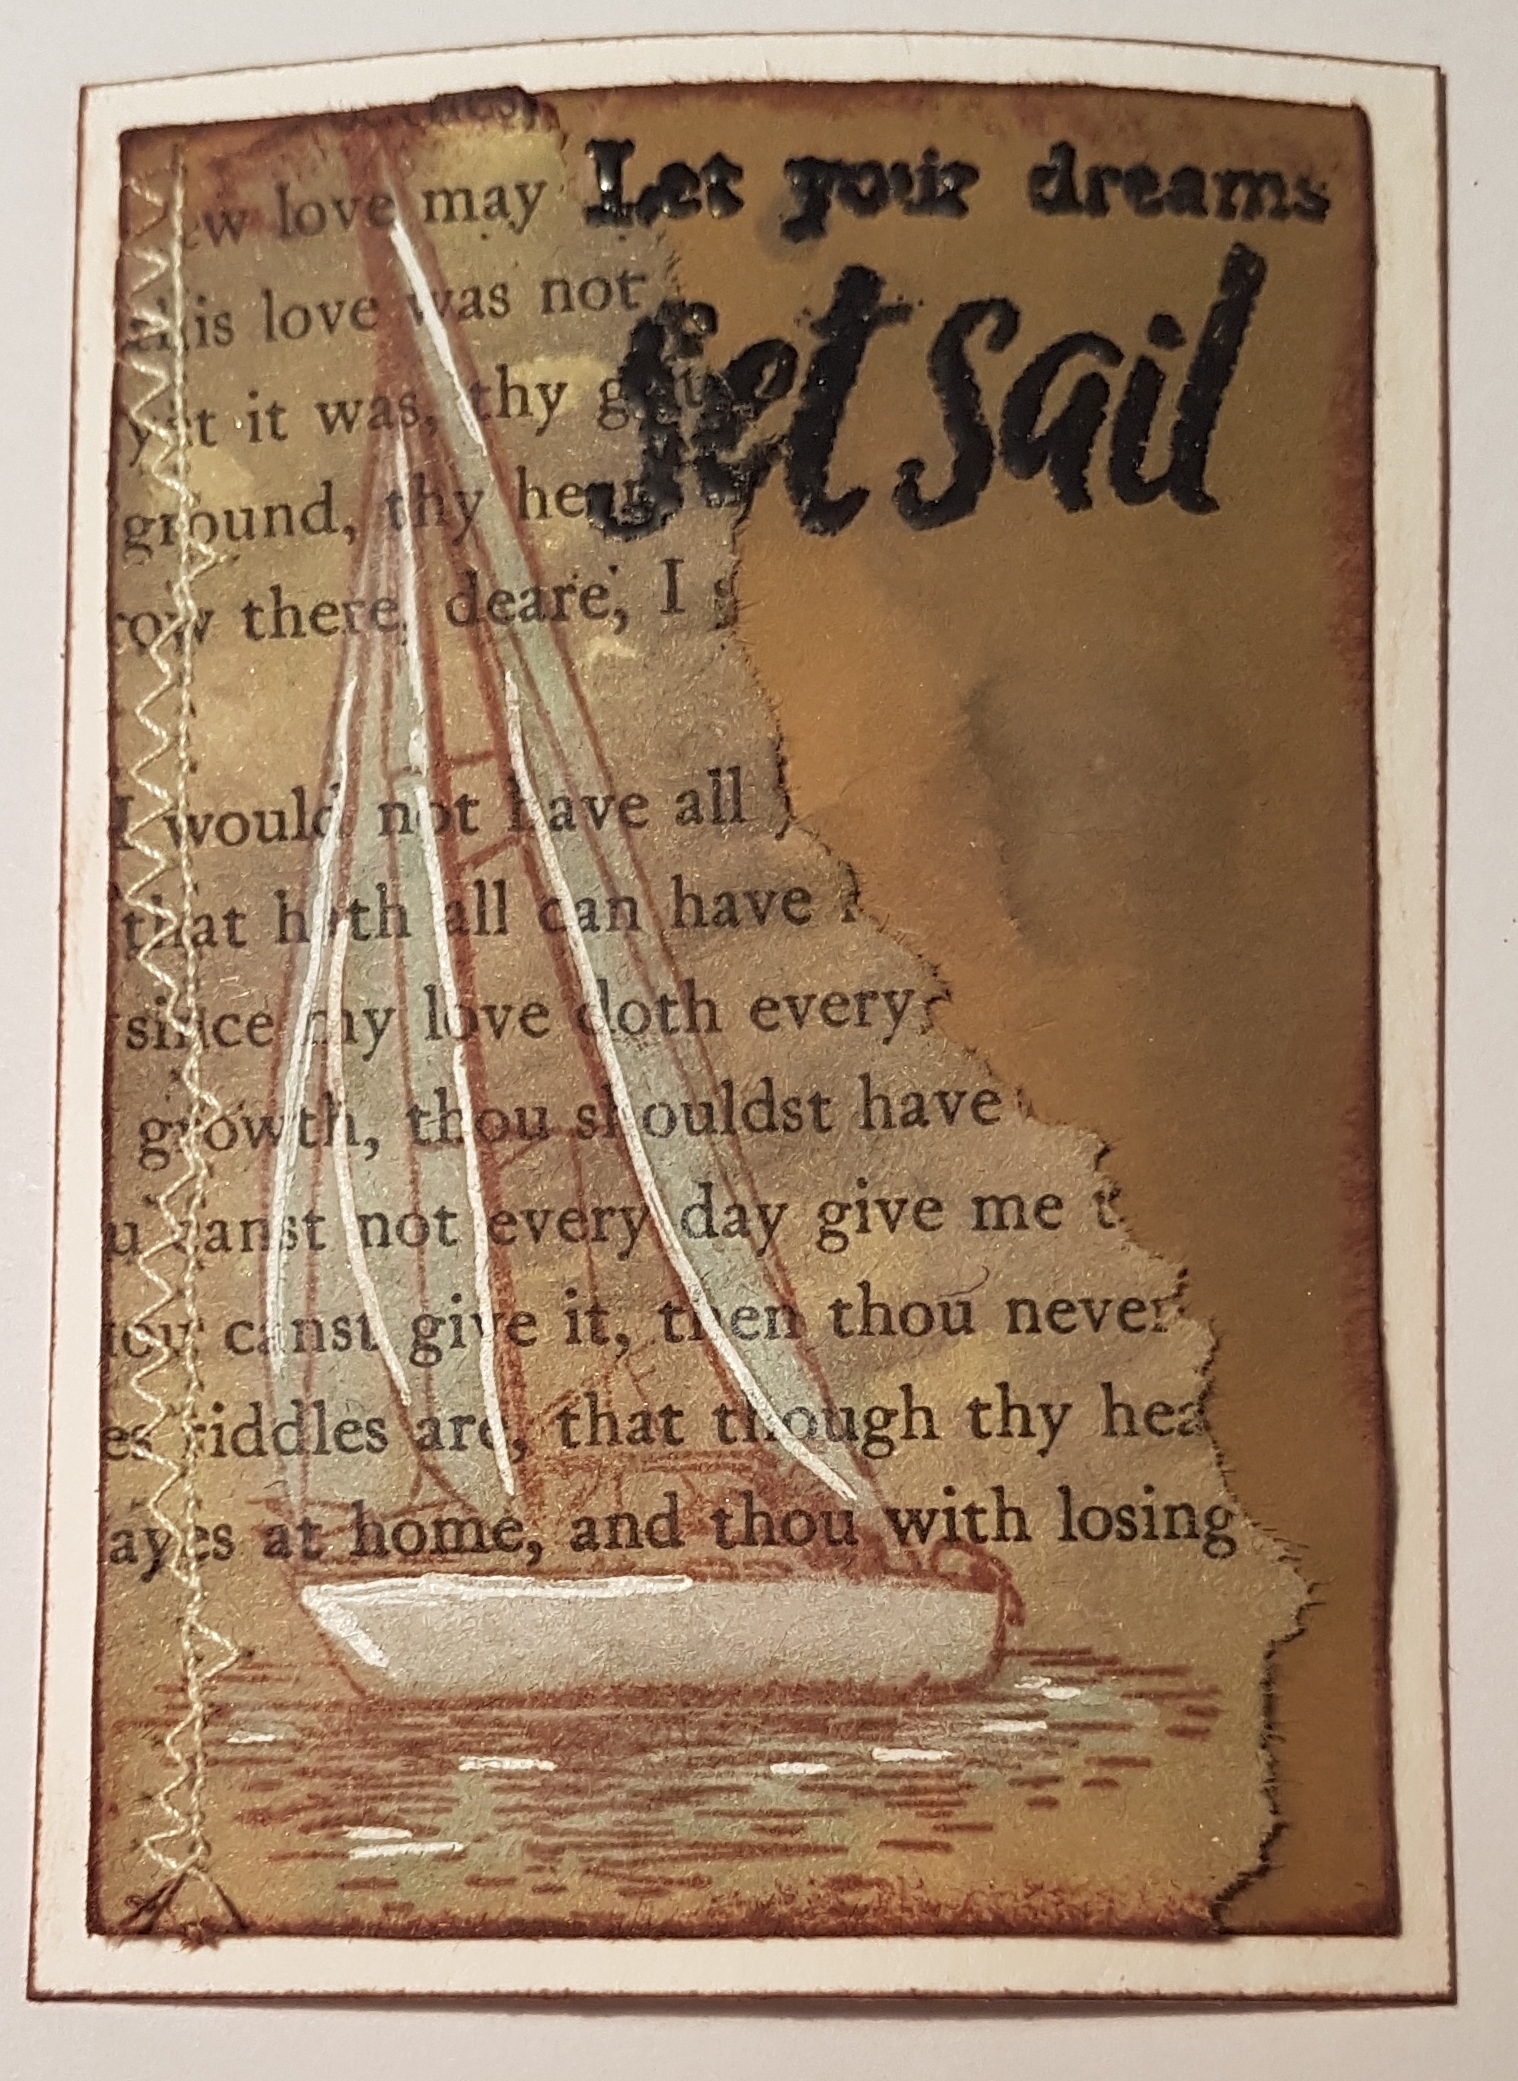 love may
Let your dreams
love was not
Set Sail
it was, thy
ground, thy
there, deare, I
I would not have all
that hath all can have
since my love doth every
growth, thou shouldst have
canst not every day give me
canst give it, then thou never
riddles are, that though thy
at home, and thou with losing